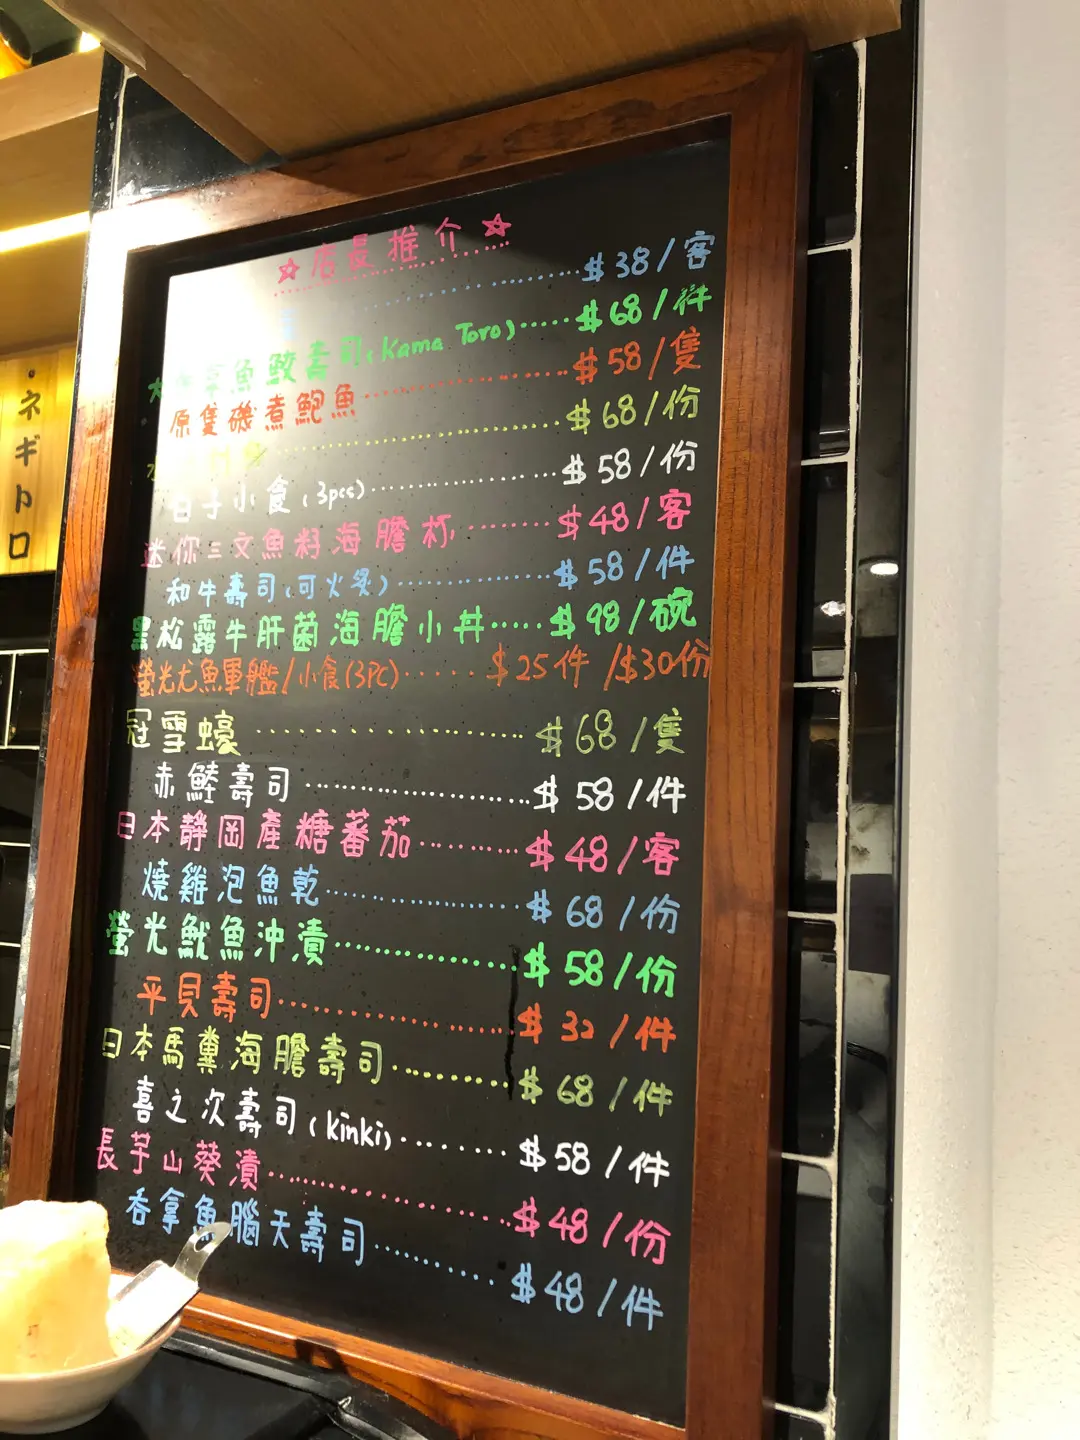 ☆店長推介☆
$38/客
拿魚鮫壽司(Kama Toro)·····$68/件
原隻磯煮鮑魚·····$58/隻
$68/份
白子小食(3pcs)·····$58/份
迷你三文魚籽海膽杯·····$48/客
和牛壽司(可火炙)·····$58/件
黑松露牛肝菌海膽小丼·····$98/碗
螢光尤魚軍艦/小食(3PC)·····$25件/$30份
冠雪蠔·····$68/隻
赤鯥壽司·····$58/件
日本靜岡產糖蕃茄·····$48/客
燒雞泡魚乾·····$68/份
螢光魷魚沖漬·····$58/份
平貝壽司·····$32/件
日本馬糞海膽壽司·····$68/件
喜之次壽司(kinki)·····$58/件
長芋山葵漬·····$48/份
吞拿魚腦天壽司·····$48/件
·ネギトロ